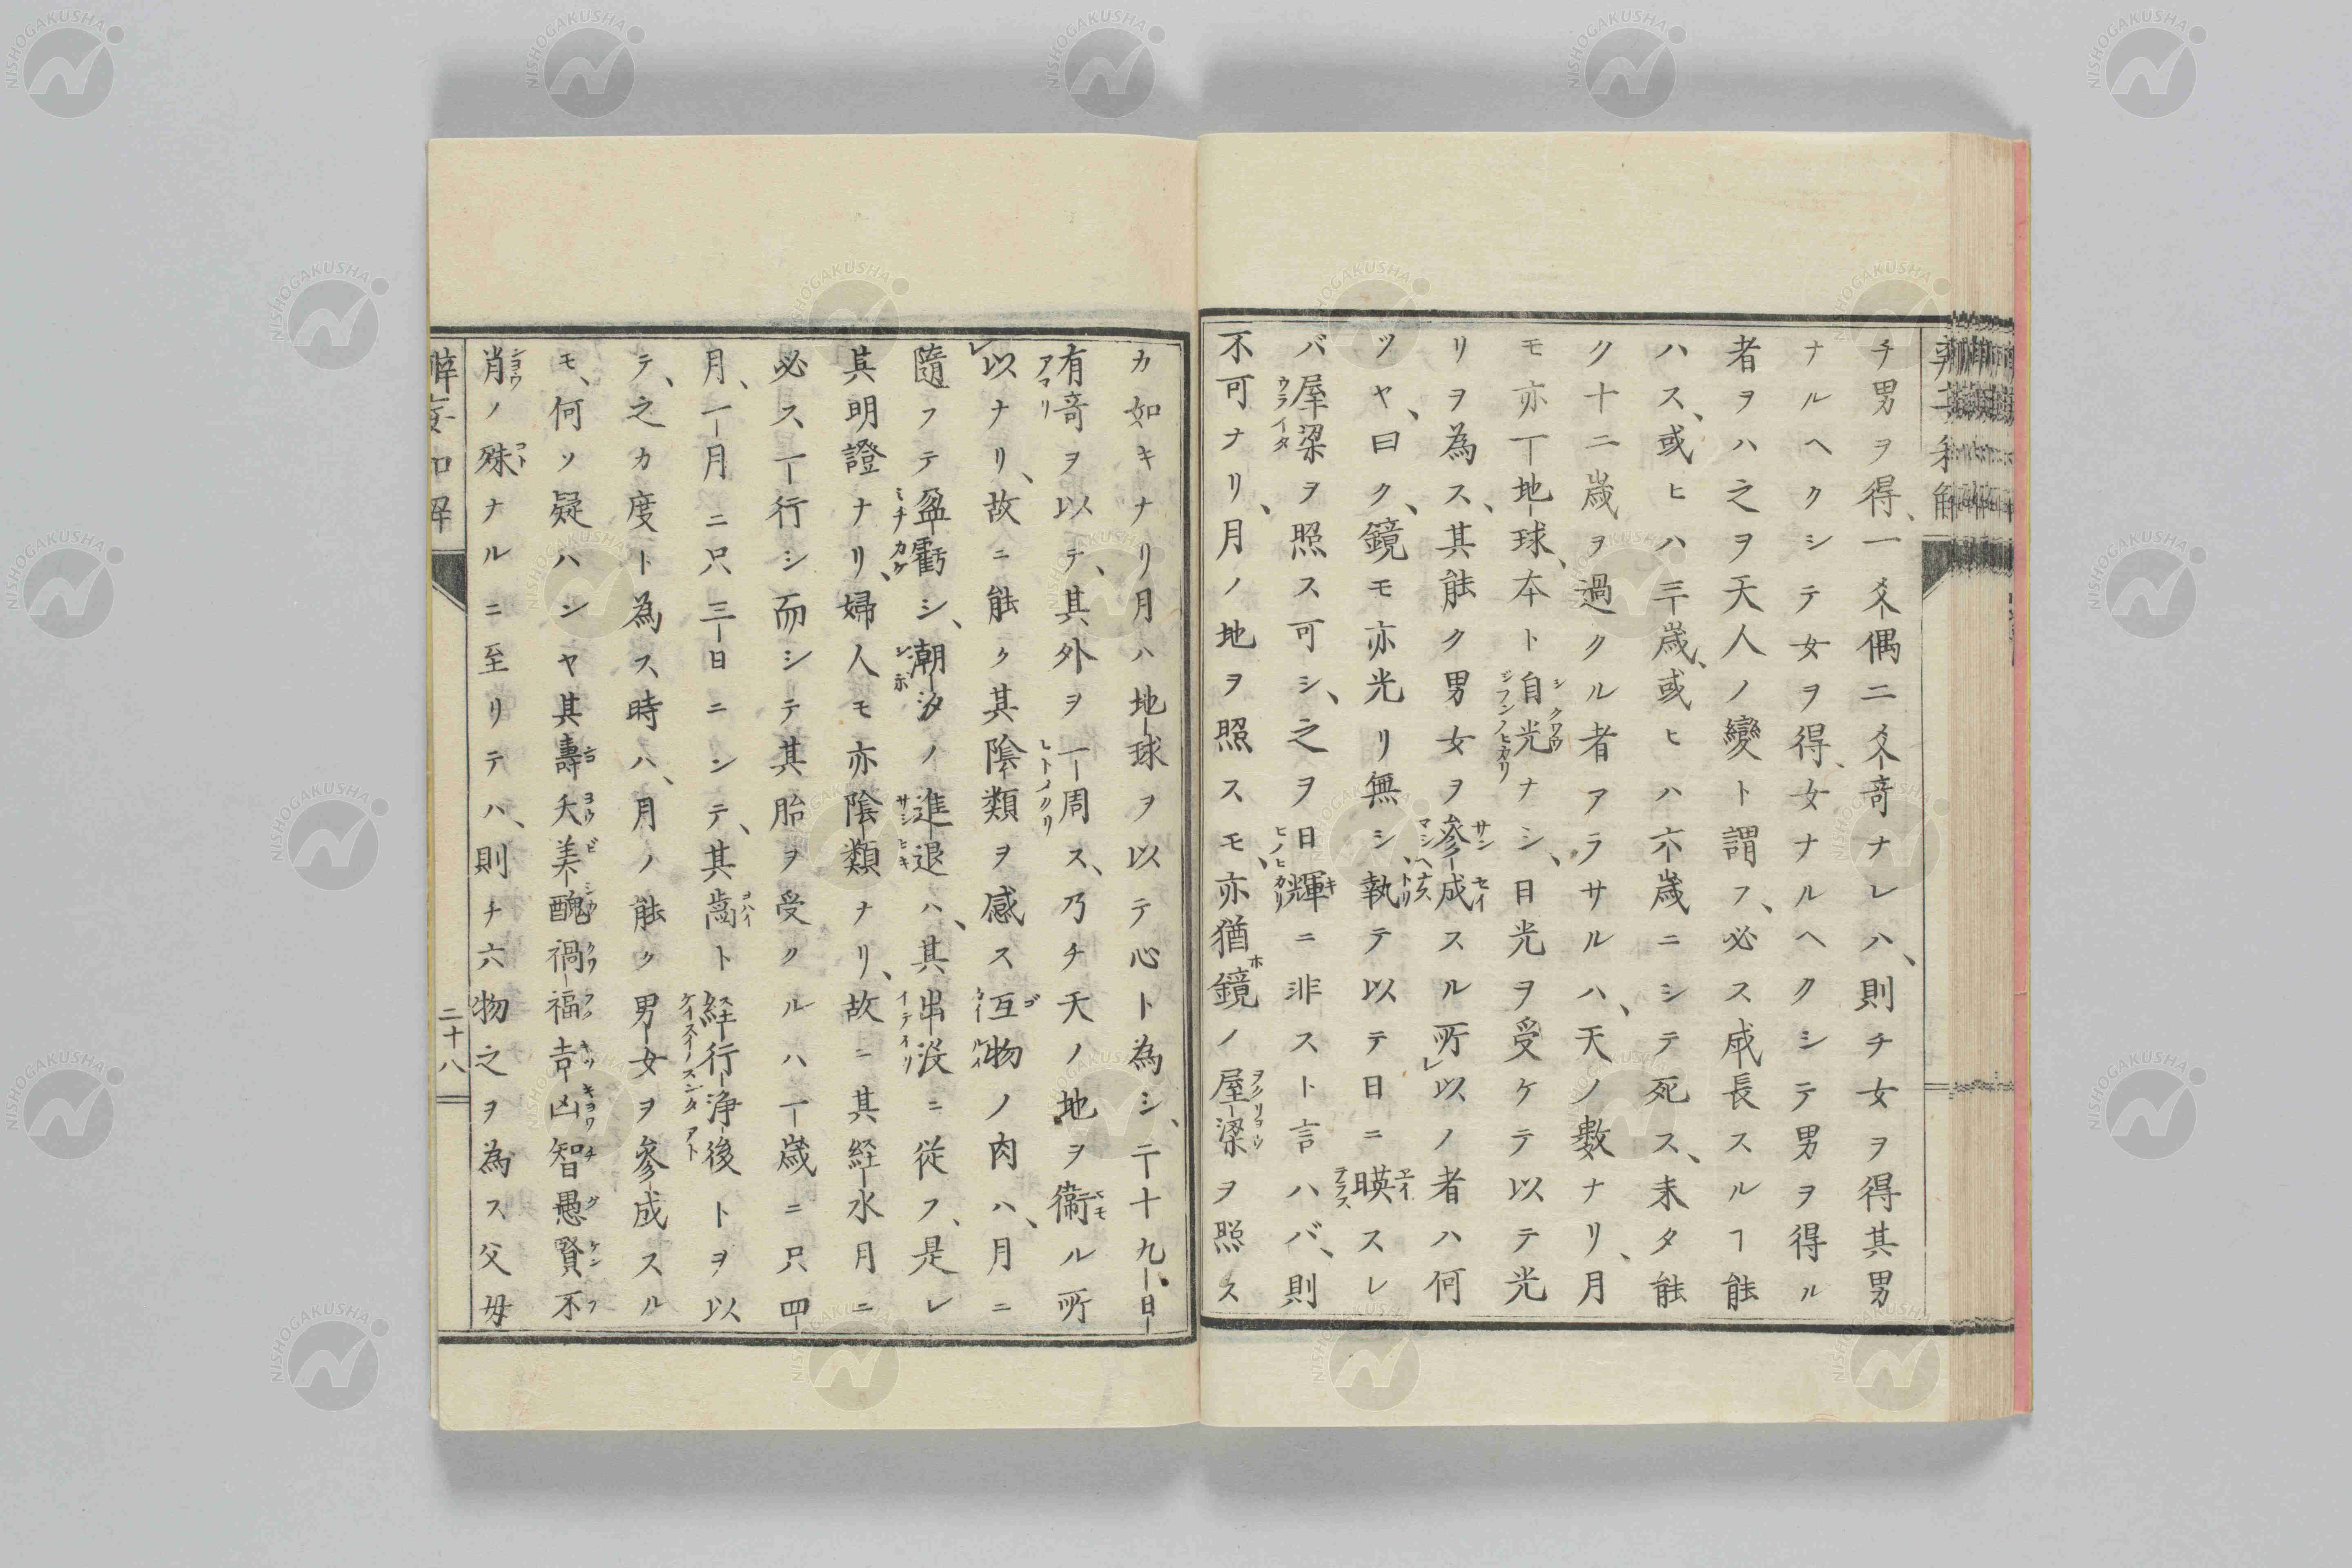 チ男ヲ得、一爻偶二爻奇ナレハ、則チ女ヲ得其男
ナルヘクシテ女ヲ得、女ナルヘクシテ男ヲ得ル
者ヲハ之ヲ天人ノ變ト謂フ、必ス成長スルヿ能
ハス、或ヒハ三歳、或ヒハ六歳ニシテ死ス、未タ能
ク十二歳ヲ過クル者アラサルハ、天ノ數ナリ、月
モ亦一地球、本ト自光ナシ、日光ヲ受ケテ以テ光
リヲ為ス、其能ク男女ヲ參成スル所以ノ者ハ何
ツヤ、曰ク、鏡モ亦光リ無シ、執テ以テ日ニ暎スレ
バ屋梁ヲ照ス可シ、之ヲ日輝ニ非スト言ハバ、則
不可ナリ、月ノ地ヲ照スモ、亦猶鏡ノ屋梁ヲ照ス
カ如キナリ月ハ地球ヲ以テ心ト為シ、二十九日
有奇ヲ以テ、其外ヲ一周ス、乃チ天ノ地ヲ衞ル所
以ナリ、故ニ能ク其陰類ヲ感ス互物ノ肉ハ、月ニ
隨フテ盈虧シ、潮汐ノ進退ハ、其出没ニ従フ、是レ
其明證ナリ、婦人モ亦陰類ナリ、故ニ其経水月ニ
必ス一行シ而シテ其胎ヲ受クルハ一歳ニ只四
月、一月ニ只三日ニシテ、其歯ト経行浄後トヲ以
テ、之カ度ト為ス時ハ、月ノ能ク男女ヲ參成スル
モ、何ソ疑ハシヤ其壽夭美醜禍福吉凶智愚賢不
肖ノ殊ナルニ至リテハ、則チ六物之ヲ為ス父母
二十八
NISHOGAKUSHA